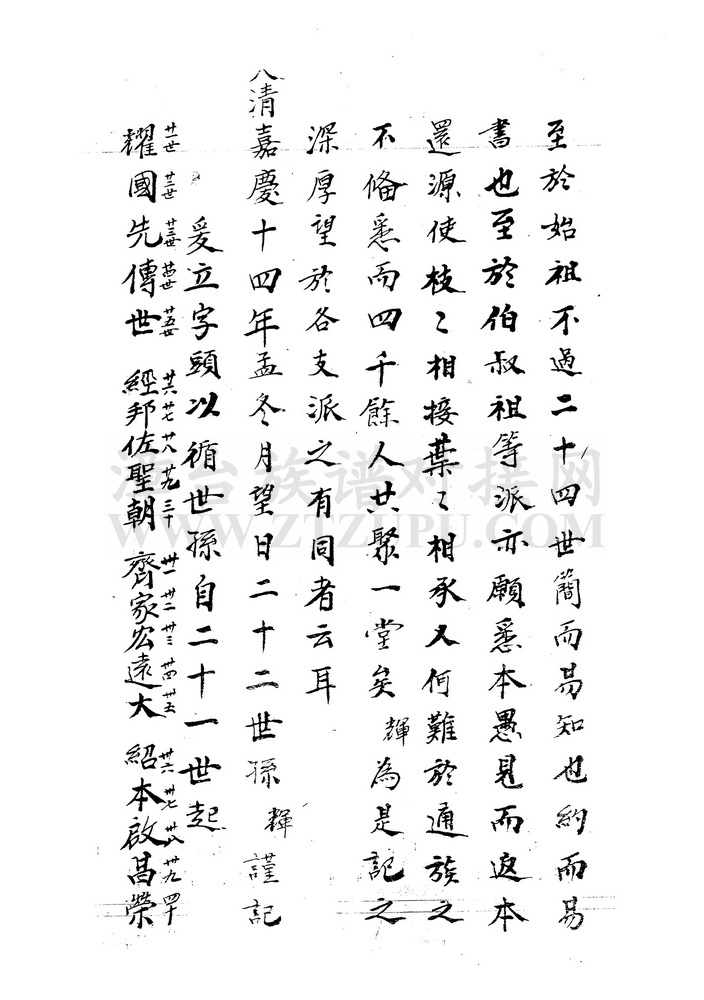 至於始祖不過二十四世簡而易知也約而易
書也至於伯叔祖等派亦願悉本愚見而返本
還源使枝〻相接葉〻相承又何難於通族之
不偹悉而四千餘人共聚一堂矣輝為是記之
深厚望於各支派之有同者云耳
大清嘉慶十四年孟冬月望日二十二世孫輝謹記
爰立字頭以循世孫自二十一世起
廿一世 廿二世 廿三世 廿四世 廿五世 廿六 廿七 廿八 廿九 三十 卅一 卅二 卅三 卅四 卅五 卅六 卅七 卅八 卅九 四十
耀國先傳世 經邦佐聖朝 齊家宏遠大 紹本啟昌榮
漳台族谱对接网
WWW.ZTZUPU.COM